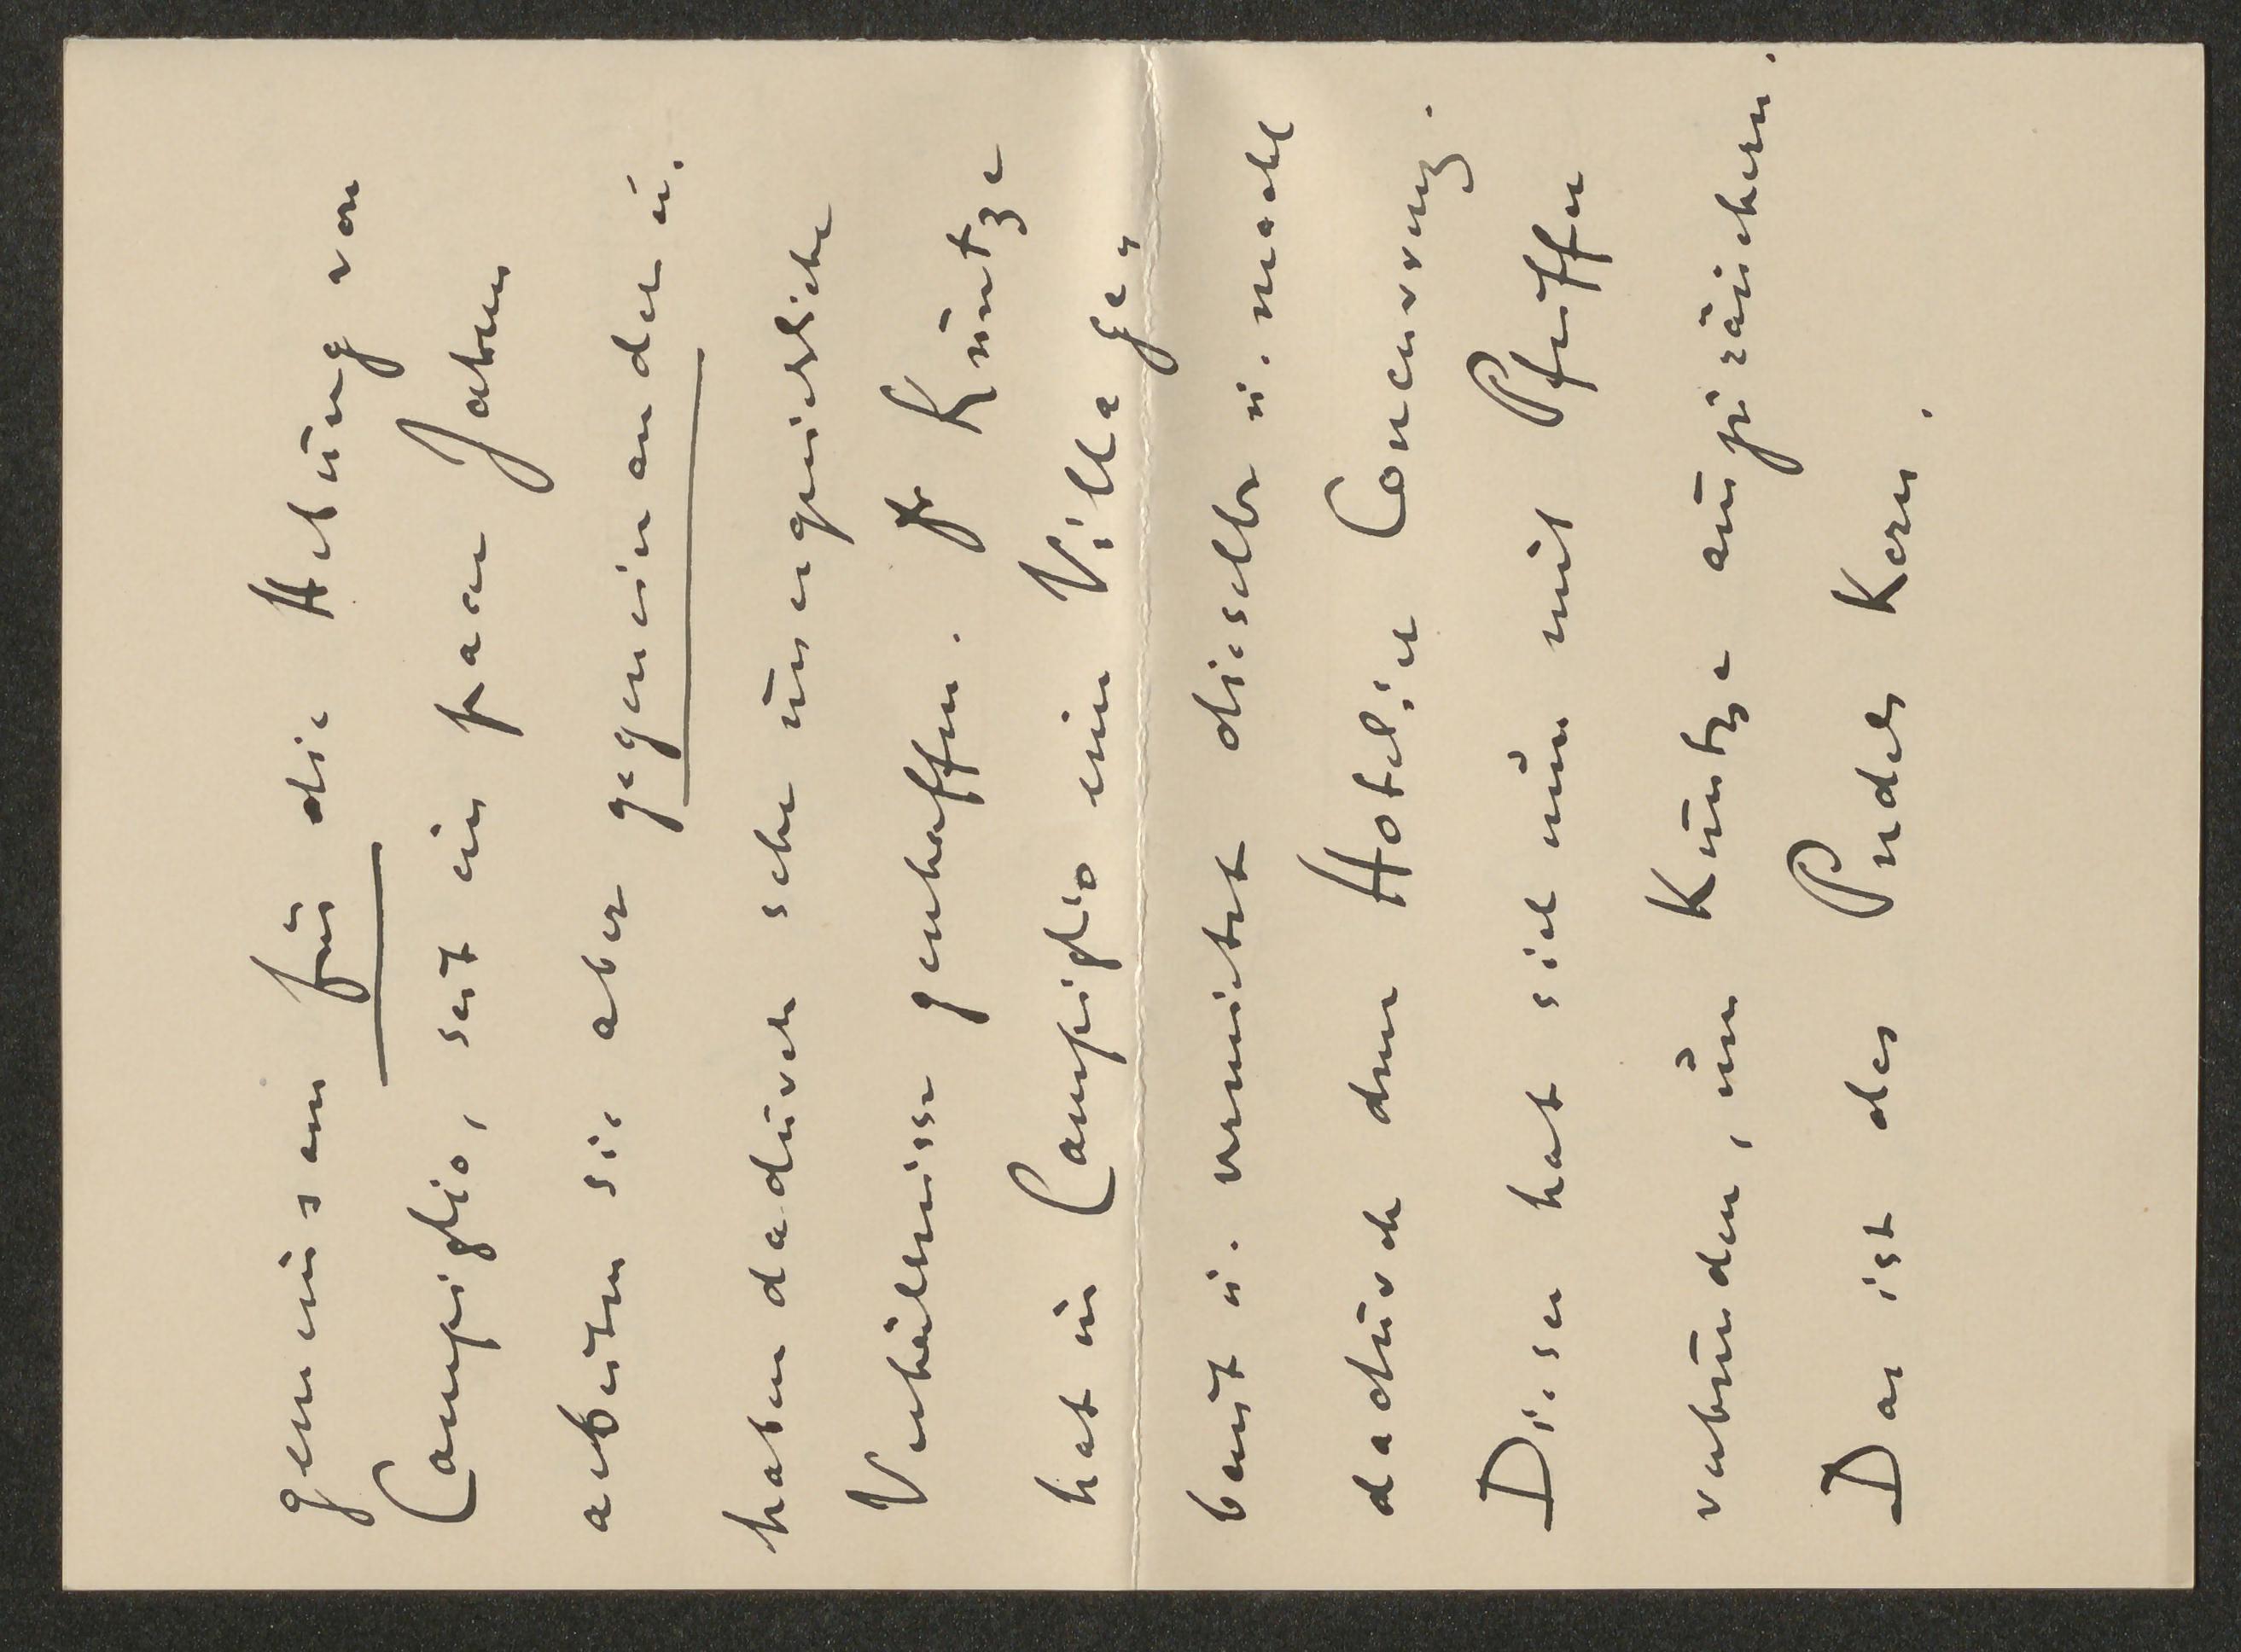 gemeinsam für die Hebung von
Campiglio, seit ein paar Jahren
arbeiten sie aber gegeneinander u.
haben dadurch sehr unerquickliche
Verhältnisse geschaffen. Kuntze
hat in Campiglio ein Villa ge,
baut u. vermietet dieselbe u. macht
dadurch dem Hotelier Concurrenz.
Dieser hat sich nun mit Pfeiffer
verbunden, um Kuntze auszuräuchern.
Das ist des Pudels Kern.